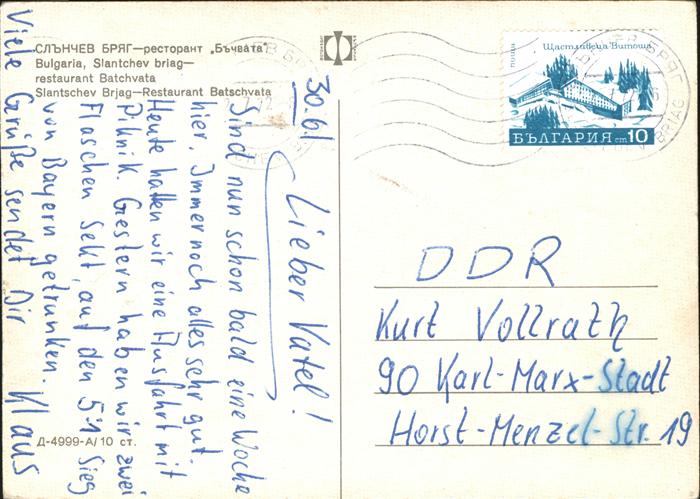 СЛЪНЧЕВ БРЯГ—ресторант „Бъчвата“
Bulgaria, Slantchev briag—
restaurant Batchvata
Slantschev Brjag—Restaurant Batschvata
30.6.
Lieber Vatel!
Sind nun schon bald eine Woche
hier. Immer noch alles sehr gut.
Heute hatten wir eine Ausfahrt mit
Piknik. Gestern haben wir zwei
Flaschen Sekt, auf den 5:1 Sieg
von Bayern getrunken.
Viele Grüße sendet Dir Klaus
Д-4999-А/10 ст.
поща
Щастливеца-Витоша
БЪЛГАРИЯ ст 10
DDR
Kurt Vollrath
90 Karl-Marx-Stadt
Horst-Menzel-Str. 19